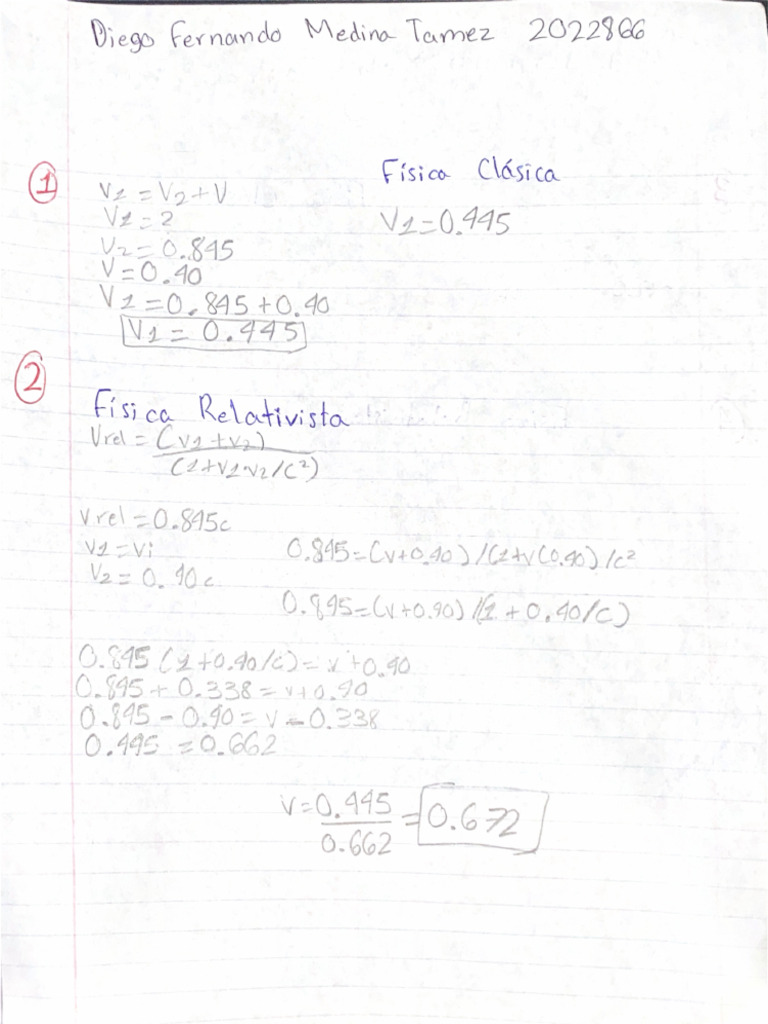 Diego Fernando Medina Tamez 2022866
1
Física Clásica
V1 = V2 + V
V1 = ?
V2 = 0.845
V = 0.40
V1 = 0.845 + 0.40
V1 = 0.445
V1 = 0.445
2
Física Relativista
Vrel = (v1 + v2)
(1 + v1 · v2 / c²)
Vrel = 0.845c
v1 = vi
v2 = 0.40c
0.845 = (v + 0.40) / (1 + v(0.40) / c²
0.845 = (v + 0.40) / (1 + 0.40/c)
0.845 (1 + 0.40/c) = v + 0.40
0.845 + 0.338 = v + 0.40
0.845 - 0.40 = v - 0.338
0.445 = 0.662
v = 0.445 = 0.672
0.662